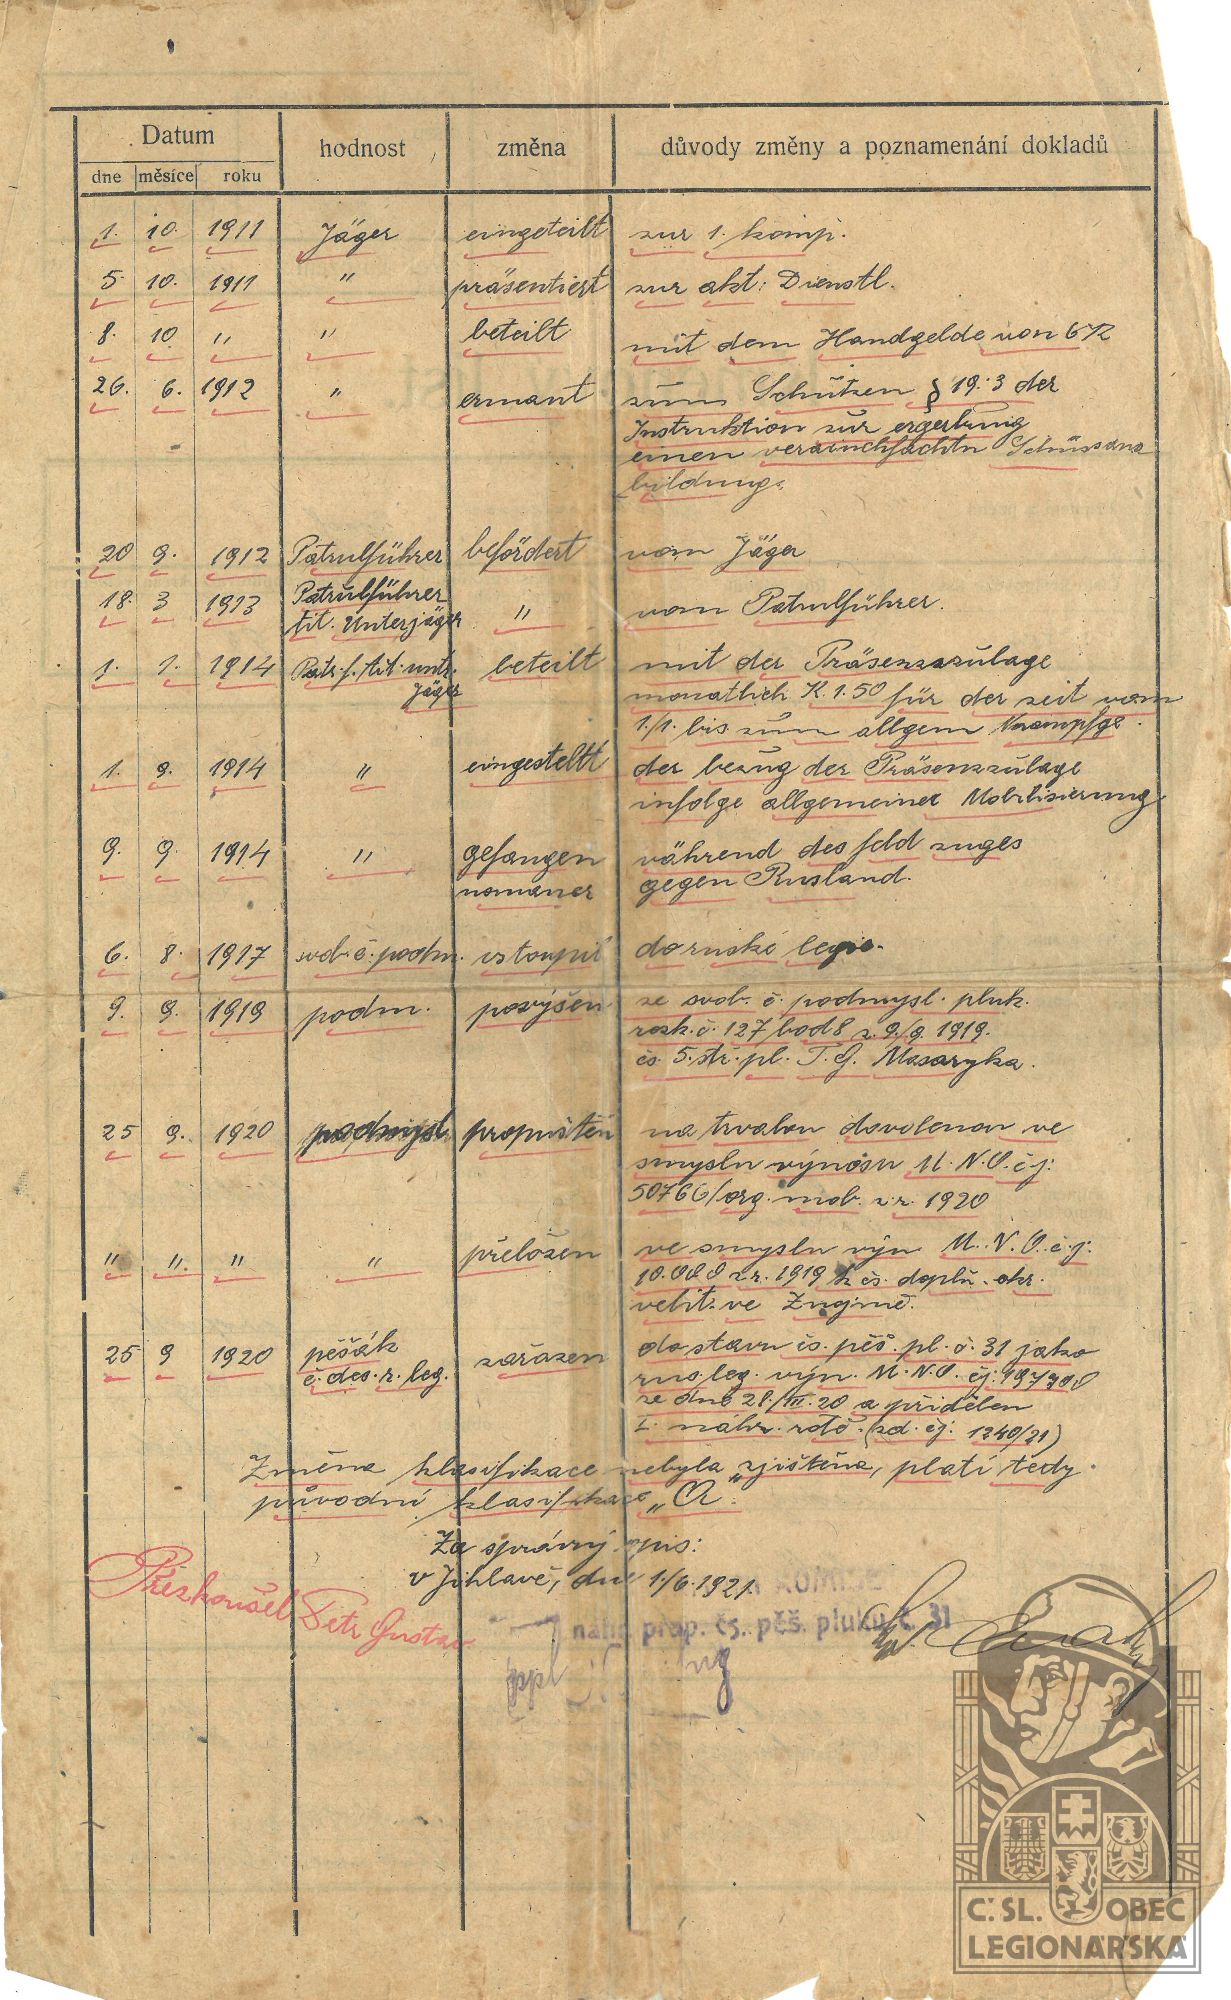 Datum hodnost změna důvody změny a poznamenání dokladů
dne měsíce roku
1. 10. 1911 Jäger eingeteilt zur 1. komp.
5. 10. 1911 " präsentiert zur akt: Dienstl.
8. 10 " " beteilt mit dem Handgelde von 6 K
26. 6. 1912 " ernant zum Schützen § 19:3 der
Instruktion zur ergertung
einen verainchfachtn
bildung.
20 9. 1912 Patrulführer befördert vom Jäger
18. 3 1913 Patrulführer
tit. Unterjäger " vom Patrulführer.
1. 1. 1914 Patr. f. tit. untr. beteilt mit der Präsenzzulage
Jäger monatlich K 1.50 für der zeit vom
1./1. bis zum allgem
1. 9. 1914 " eingestellt der bezug der Präsenzzulage
infolge allgemeiner Mobilisierung
9. 9. 1914 " gefangen während des feld zuges
gegen Rusland.
6. 8. 1917 svob. č. podm. vstoupil do ruské legie.
9. 9. 1919 podm. povýšen ze svob. č. podmysl. pluk.
rozk. č. 127/bod 8 z 9./9. 1919.
čs. 5. stř. pl. T. G. Masaryka.
25 9. 1920 podmysl. propuštěn na trvalou dovolenou ve
smyslu výnosu M. N. O. čj:
50766/org. mob. z r. 1920
" " " " přeložen ve smyslu výn M. N. O. č. j:
10.000 z r. 1919 k čs. doplň. okr.
velit. ve Znojmě.
25 9 1920 pěšák zařazen do stavu čs. pěš. pl. č. 31 jako
č. des. r. leg. rus. leg. výn. M. N. O. čj:
ze dne 28./III. 20 a přidělen
I. náhr. rotě. (zd. čj: 1240/21)
Změna klasifikace nebyla zjištěna, platí tedy
původní klasifikace "A".
Za správný opis:
v Jihlavě, dne 1./6. 1921.
KOMISE
náhr. prap. čs. pěš. pluku č. 31
Přezkoušel Petr Gustav
Č. SL. OBEC
LEGIONÁŘSKÁ